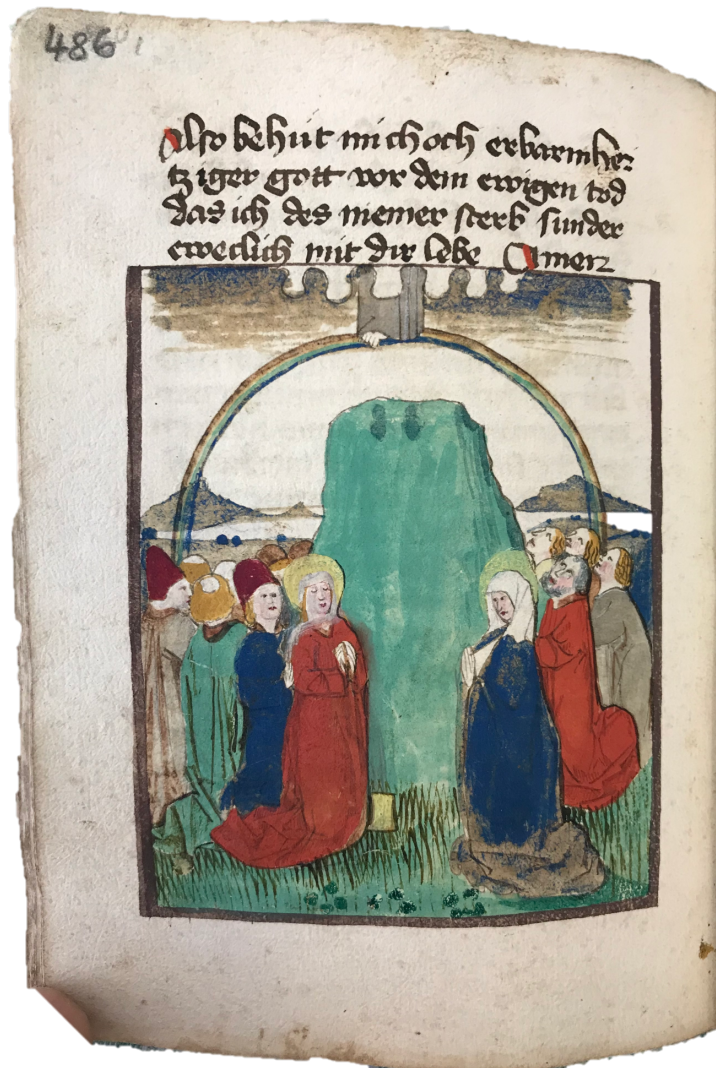 486
Also behüt mich och erbarmher
tziger gott vor dem ewigen tod
das ich des niemer sterb sunder
eweclich mit dir lebe Amen